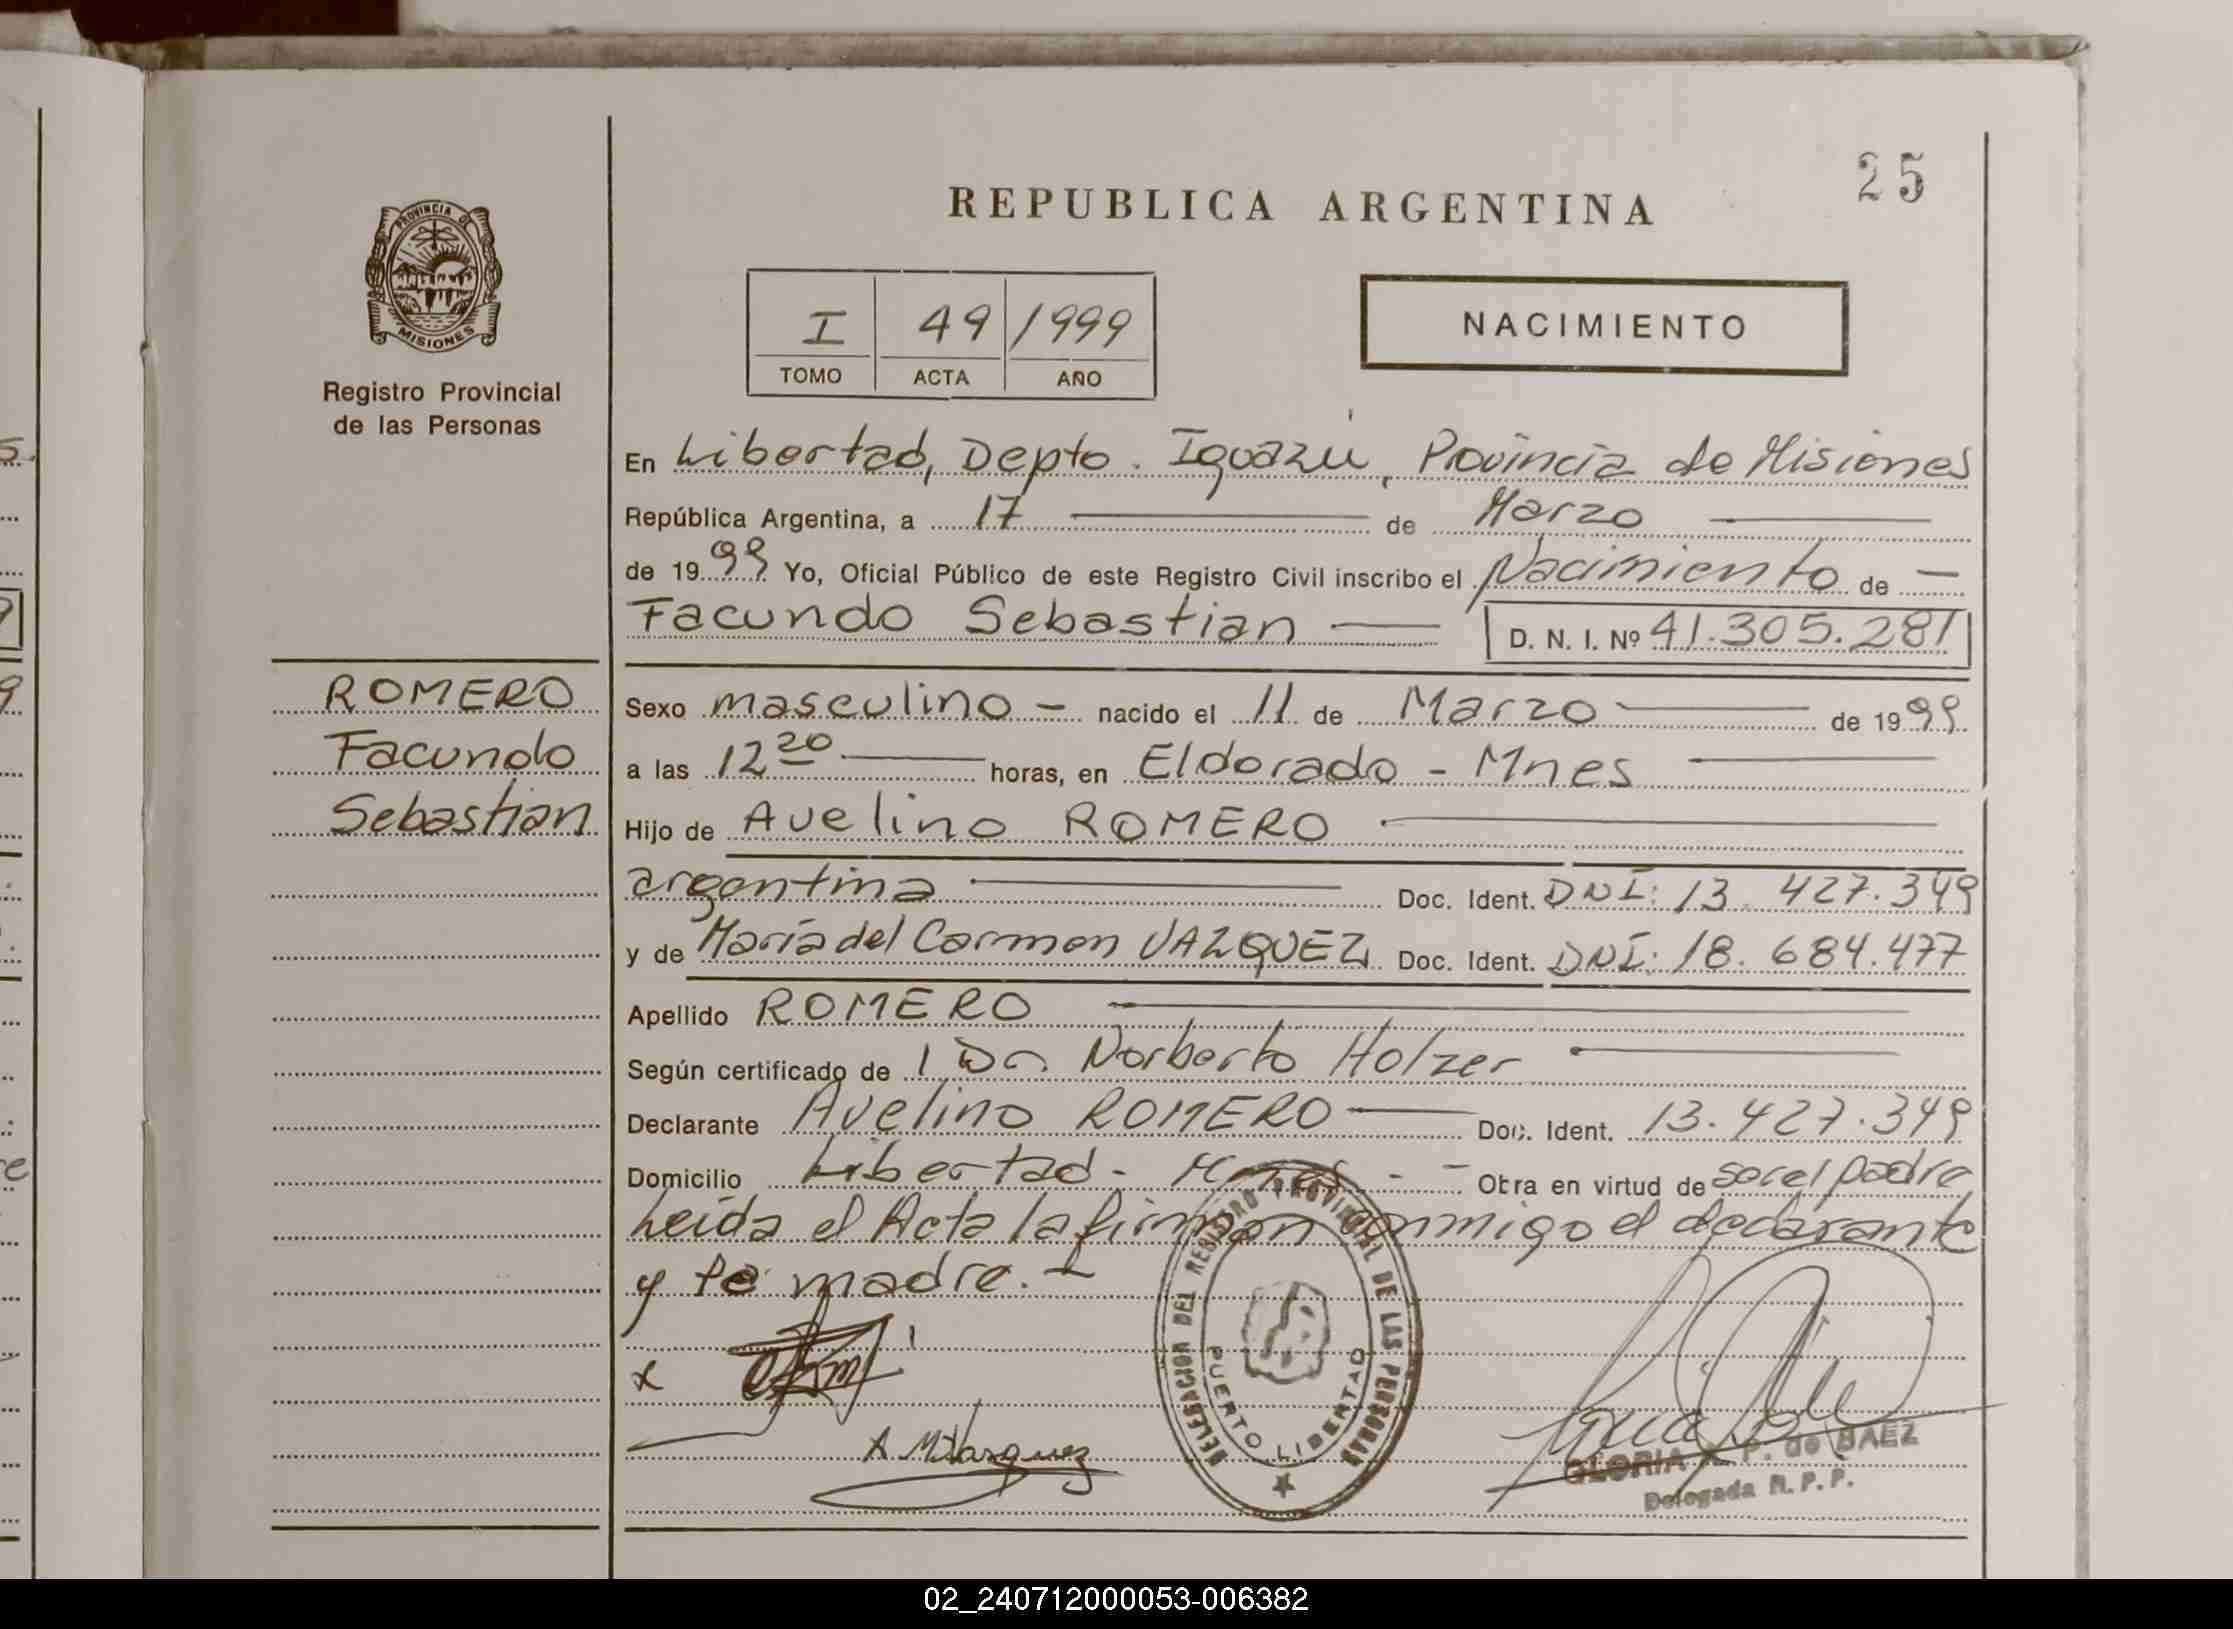 25
REPUBLICA ARGENTINA
PROVINCIA DE
MISIONES
Registro Provincial
de las Personas
I 49 1999
TOMO ACTA AÑO
NACIMIENTO
En Libertad, Depto. Iguazú, Provincia de Misiones
República Argentina, a 17 de Marzo
de 1999 Yo, Oficial Público de este Registro Civil inscribo el Nacimiento de —
Facundo Sebastian — D. N. I. Nº 41.305.281
ROMERO
Facundo
Sebastian
Sexo masculino - nacido el 11 de Marzo de 1999
a las 12 20 horas, en Eldorado - Mnes
Hijo de Avelino ROMERO
argentina Doc. Ident. DNI: 13.427.349
y de María del Carmen VAZQUEZ Doc. Ident. DNI: 18.684.477
Apellido ROMERO
Según certificado de 1 Dr. Norberto Holzer
Declarante Avelino ROMERO — Doc. Ident. 13.427.349
Domicilio Libertad - Mnes - - Obra en virtud de ser el padre
Leída el Acta la firman conmigo el declarante
y la madre. -
x
DELEGACION DEL REGISTRO PROVINCIAL DE LAS PERSONAS
PUERTO LIBERTAD
GLORIA P. de BAEZ
Delegada R. P. P.
02_240712000053-006382